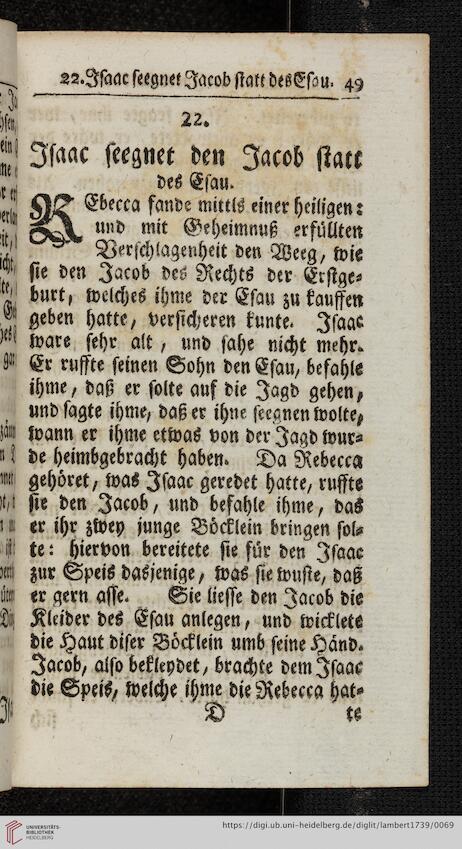 22. Isaac seegnet Jacob statt des Esau. 49
22.
Isaac seegnet den Jacob statt
des Esau.
REbecca fande mittls einer heiligen:
und mit Geheimnuß erfüllten
Verschlagenheit den Weeg, wie
sie den Jacob des Rechts der Erstge-
burt, welches ihme der Esau zu kauffen
geben hatte, versicheren kunte. Isaac
ware sehr alt, und sahe nicht mehr.
Er ruffte seinen Sohn den Esau, befahle
ihme, daß er solte auf die Jagd gehen,
und sagte ihme, daß er ihne seegnen wolte,
wann er ihme etwas von der Jagd wur-
de heimbgebracht haben. Da Rebecca
gehöret, was Isaac geredet hatte, ruffte
sie den Jacob, und befahle ihme, das
er ihr zwey junge Böcklein bringen sol-
te: hiervon bereitete sie für den Isaac
zur Speis dasjenige, was sie wuste, daß
er gern asse. Sie liesse den Jacob die
Kleider des Esau anlegen, und wicklete
die Haut diser Böcklein umb seine Händ.
Jacob, also bekleydet, brachte dem Isaac
die Speis, welche ihme die Rebecca hat-
D te
UNIVERSITÄTS-
BIBLIOTHEK
HEIDELBERG
https://digi.ub.uni-heidelberg.de/diglit/lambert1739/0069